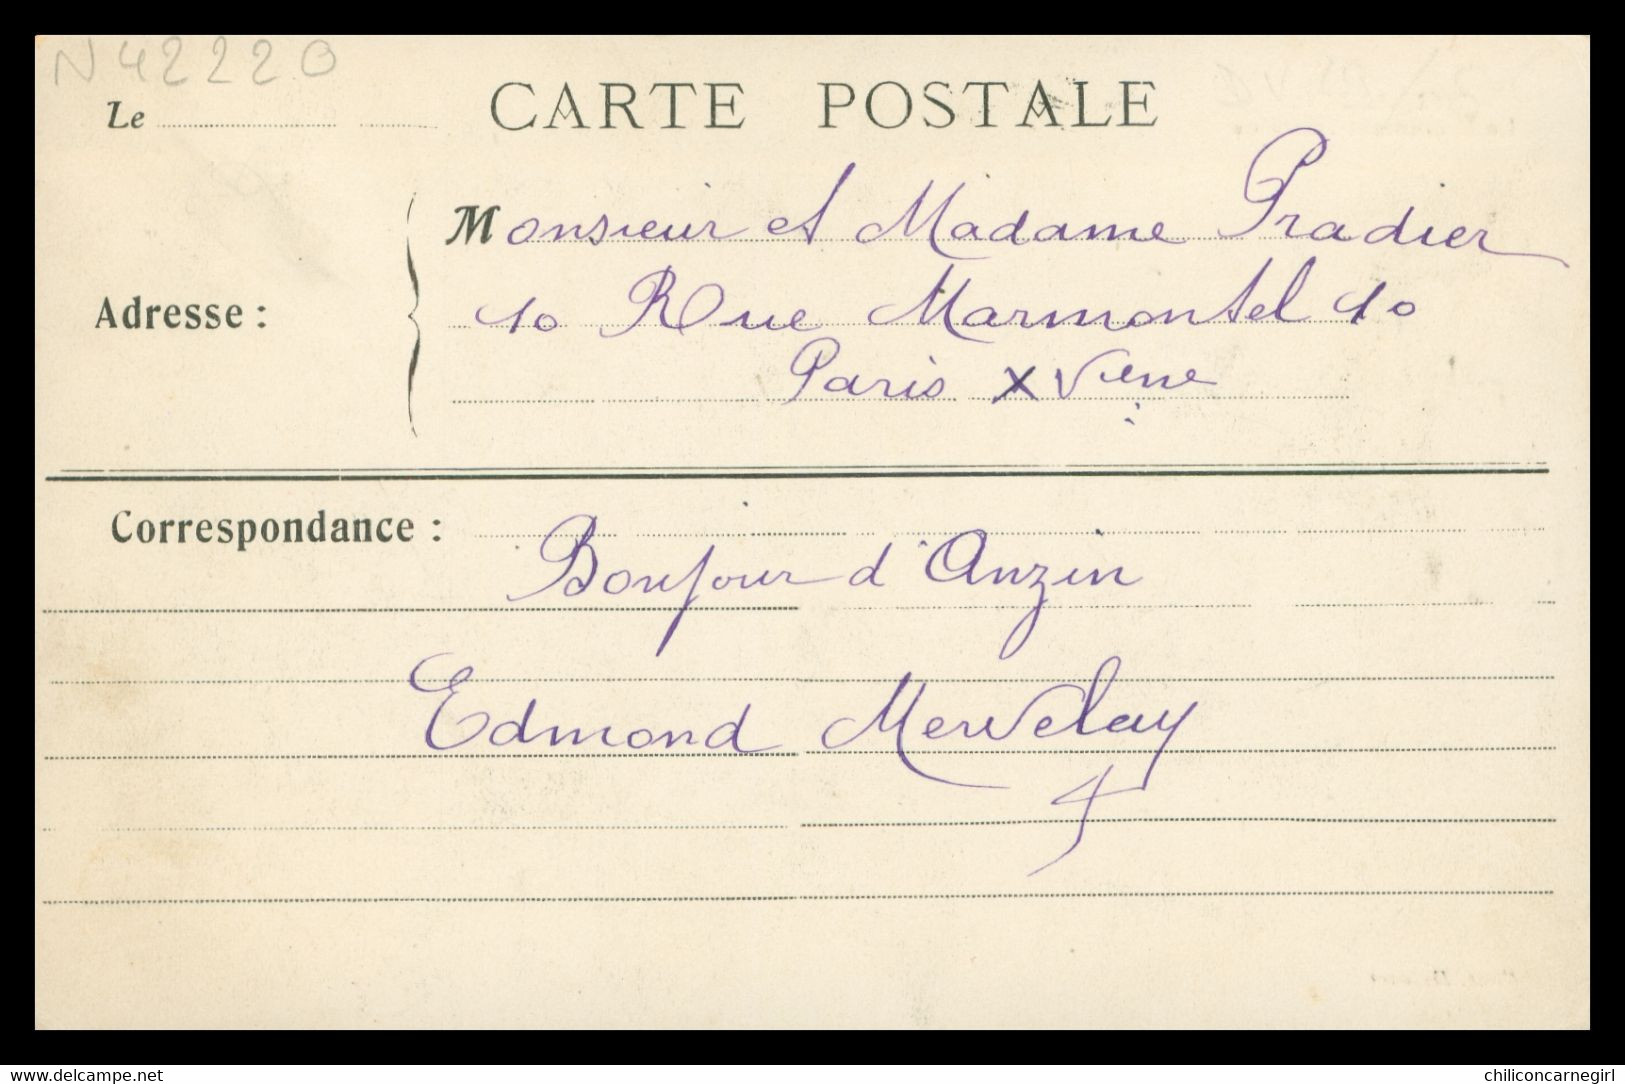 N42220
CARTE POSTALE
Le
Monsieur et Madame Pradier
Adresse :
10 Rue Marmontel 10
Paris XVème
Correspondance :
Bonjour d'Anzin
Edmond Mervelay
www.delcampe.net
chiliconcarnegirl